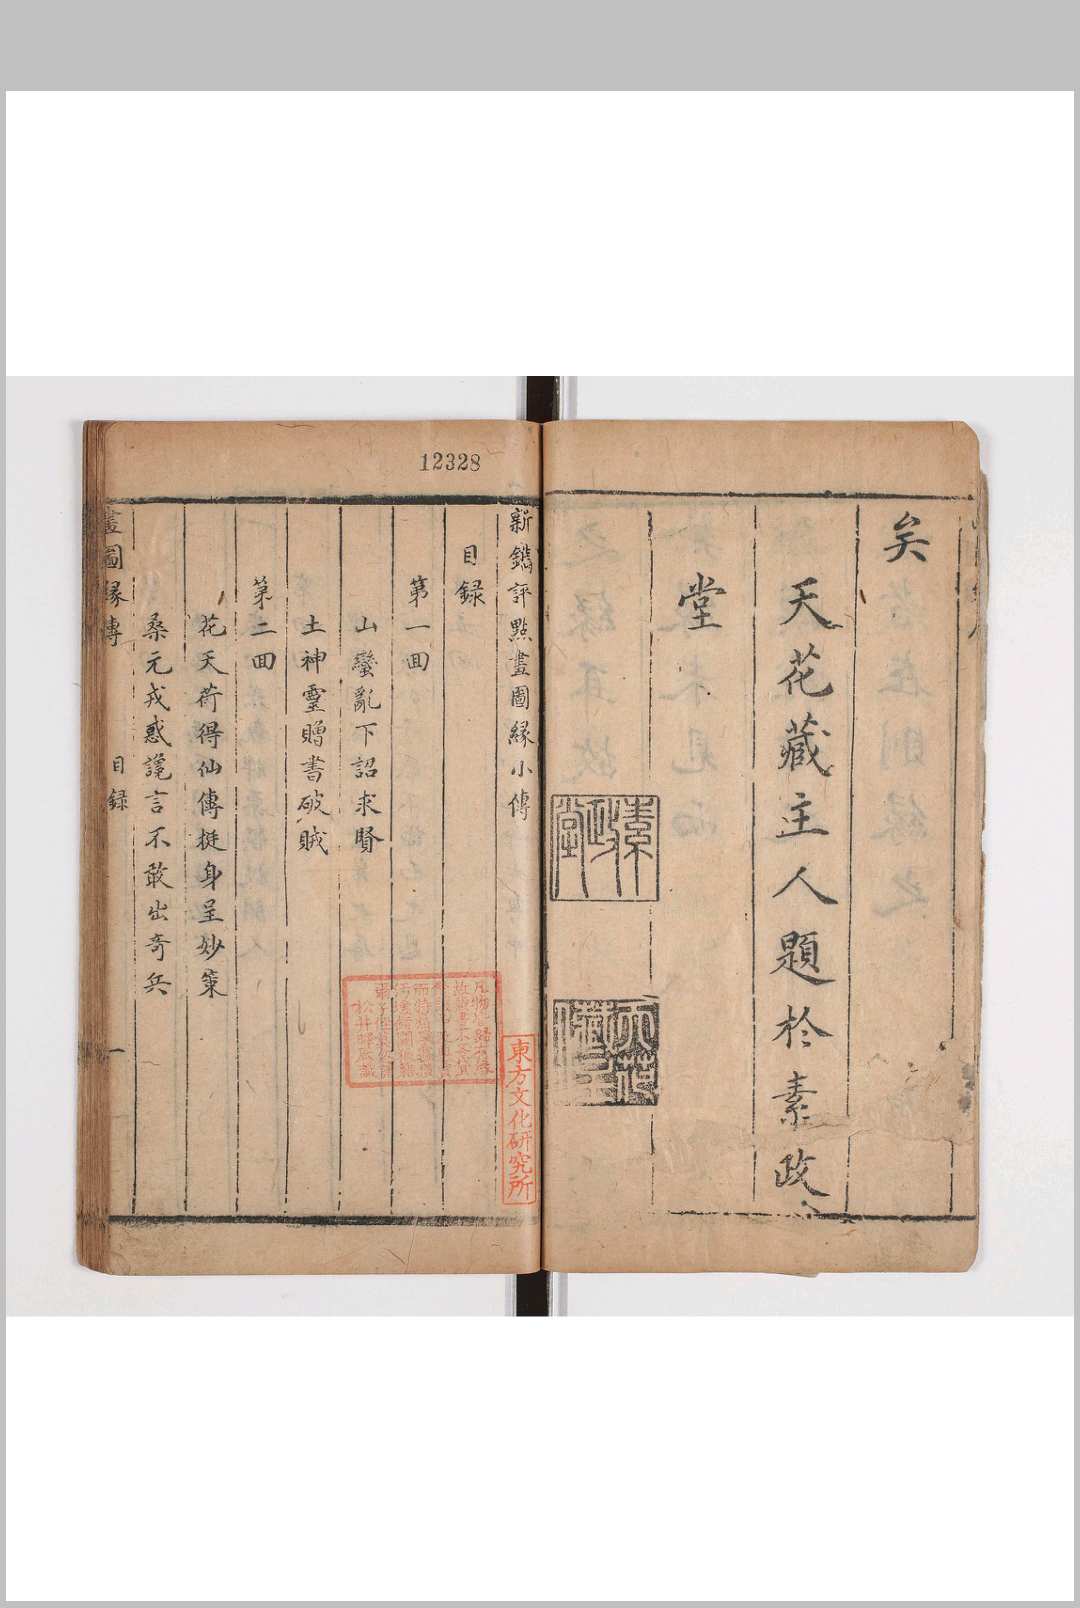 矣
天花藏主人題於素政
堂
素政堂
天花藏主人
12328
新鐫評點畫圖緣小傳
目録
第一回
山蠻亂下詔求賢
土神靈贈書破賊
第二回
花天荷得仙傳挺身呈妙策
桑元戎惑讒言不敢出奇兵
畫圖緣傳
目録
一
東方文化研究所